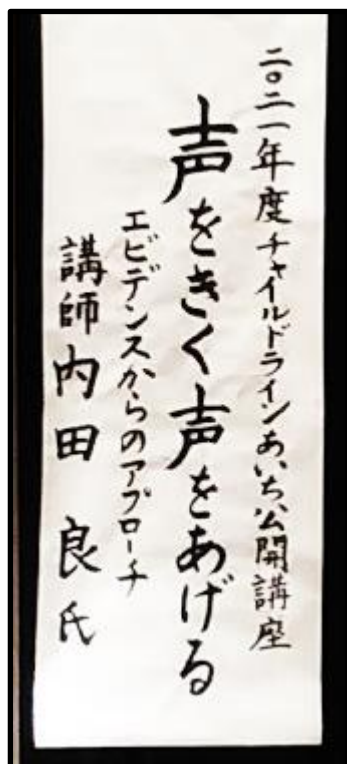 二〇二一年度チャイルドラインあいち公開講座
声をきく声をあげる
エビデンスからのアプローチ
講師内田 良氏